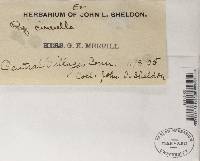 Ex
HERBARIUM OF JOHN L. SHELDON.
HERB. G. K. MERRILL
Central Village, Conn. 11/3/05
Coll. John L. Sheldon